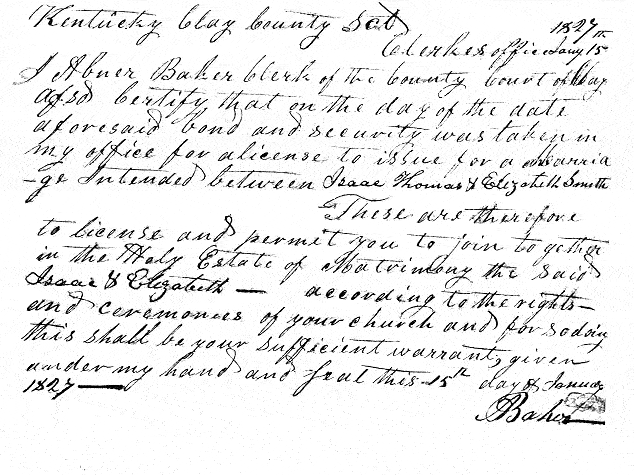 Kentucky Clay County Sct
1827
Clerkes office Jany 15th
I Abner Baker Clerk of the County Court of Clay
afsd Certify that on the day of the date
aforesaid bond and security was taken in
my office for a license to issue for a marria
-ge Intended between Isaac Thomas & Elizabeth Smith
These are therefore
to license and permit you to join together
in the Holy Estate of Matrimony the said
Isaac & Elizabeth — according to the rights—
and ceremonies of your church and for so doing
this shall be your sufficient warrant, given
under my hand and seal this 15th day of January
1827 —
Baker